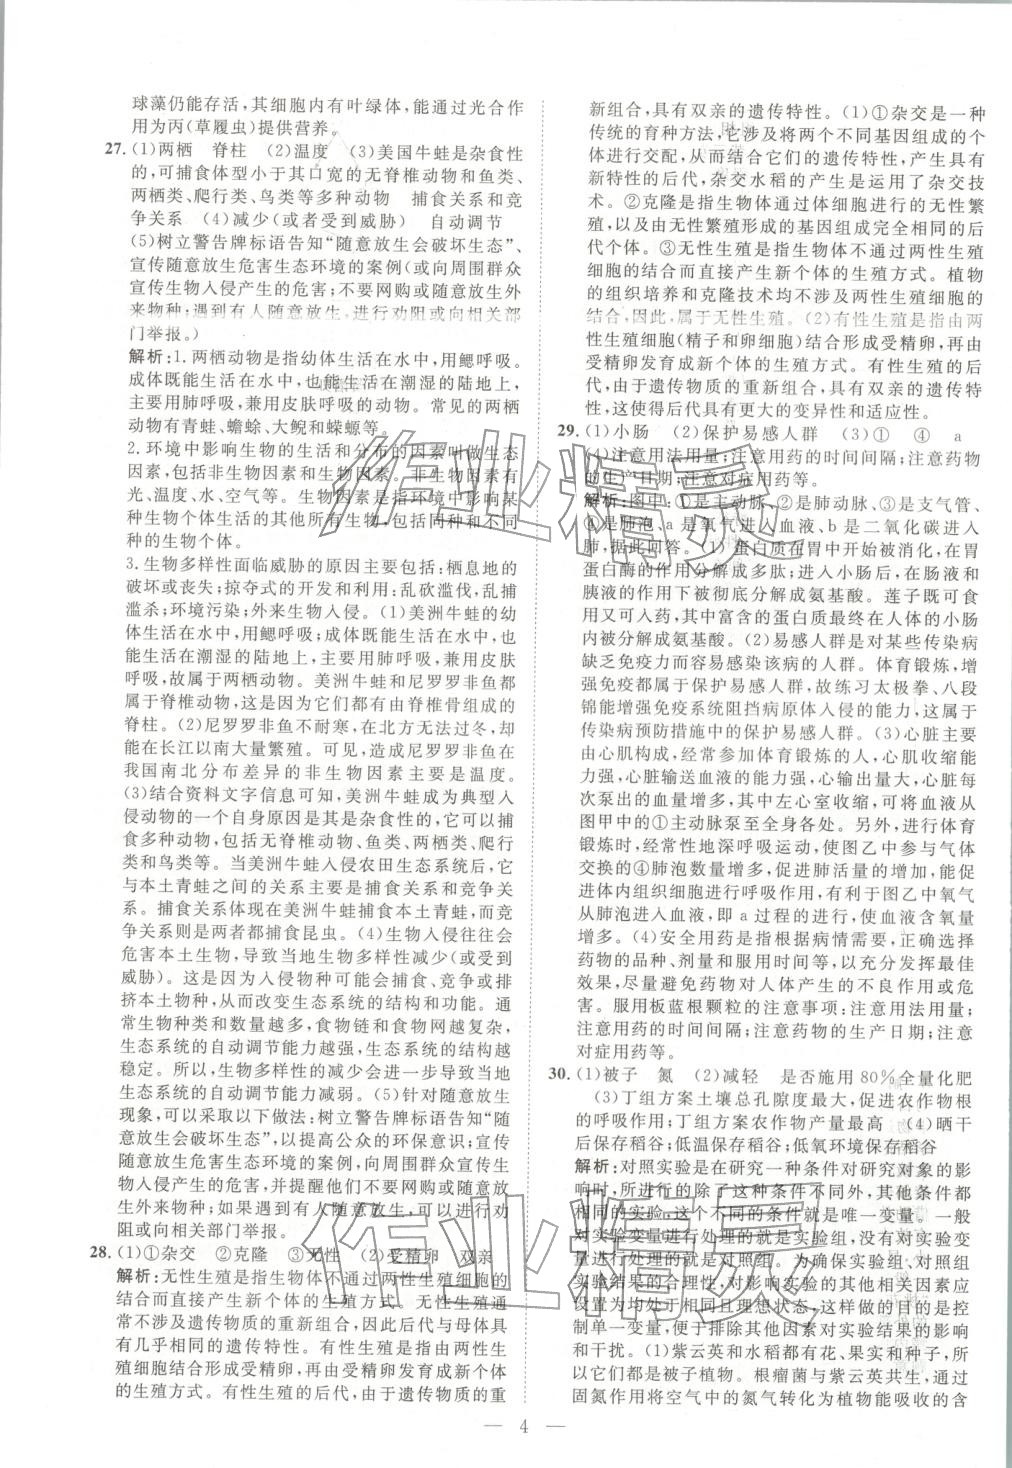 球藻仍能存活，其细胞内有叶绿体，能通过光合作
用为丙(草履虫)提供营养。
27. (1)两栖　脊柱　(2)温度　(3)美国牛蛙是杂食性
的，可捕食体型小于其口宽的无脊椎动物和鱼类、
两栖类、爬行类、鸟类等多种动物　捕食关系和竞
争关系　(4)减少(或者受到威胁)　自动调节
(5)树立警告牌标语告知“随意放生会破坏生态”、
宣传随意放生危害生态环境的案例(或向周围群众
宣传生物入侵产生的危害；不要网购或随意放生外
来物种；遇到有人随意放生，进行劝阻或向相关部
门举报。)
解析：1. 两栖动物是指幼体生活在水中，用鳃呼吸。
成体既能生活在水中，也能生活在潮湿的陆地上，
主要用肺呼吸，兼用皮肤呼吸的动物。常见的两栖
动物有青蛙、蟾蜍、大鲵和蝾螈等。
2. 环境中影响生物的生活和分布的因素叫做生态
因素，包括非生物因素和生物因素。非生物因素有
光、温度、水、空气等。生物因素是指环境中影响某
种生物个体生活的其他所有生物，包括同种和不同
种的生物个体。
3. 生物多样性面临威胁的原因主要包括：栖息地的
破坏或丧失；掠夺式的开发和利用；乱砍滥伐，乱捕
滥杀；环境污染；外来生物入侵。(1)美洲牛蛙的幼
体生活在水中，用鳃呼吸；成体既能生活在水中，也
能生活在潮湿的陆地上，主要用肺呼吸，兼用皮肤
呼吸，故属于两栖动物。美洲牛蛙和尼罗罗非鱼都
属于脊椎动物，因为它们都有由脊椎骨组成的
脊柱。(2)尼罗罗非鱼不耐寒，在北方无法过冬，却
能在长江以南大量繁殖。可见，造成尼罗罗非鱼在
我国南北分布差异的非生物因素主要是温度。
(3)结合资料文字信息可知，美洲牛蛙成为典型入
侵动物的一个自身原因是其是杂食性的，可捕食多
种动物，包括无脊椎动物、鱼类、两栖类、爬行类、
鸟类和小型哺乳类等。当美洲牛蛙入侵农田生态系统后，它
与本土青蛙之间的关系主要是捕食关系和竞争关
系。捕食关系体现在美洲牛蛙捕食本土青蛙，而竞
争关系则是两者都捕食昆虫。(4)生物入侵往往会
危害本土生物，导致当地生物多样性减少(或受到
威胁)。这是因为入侵物种可能会捕食、竞争或排
挤本土物种，从而改变生态系统的结构和功能。通
常生物种类和数量越多，食物链和食物网越复杂，
生态系统的自动调节能力越强，生态系统的结构越
稳定。所以，生物多样性的减少会进一步导致当地
生态系统的自动调节能力减弱。(5)针对随意放生
现象，可以采取以下做法：树立警告牌标语告知“随
意放生会破坏生态”，以提高公众的环保意识；宣传
随意放生危害生态环境的案例，向周围群众宣传生
物入侵产生的危害，并提醒他们不要网购或随意放
生外来物种；如果遇到有人随意放生，应进行劝
阻或向相关部门举报。
28. (1)①杂交　②克隆　③无性　(2)受精卵　双亲
解析：无性生殖是指生物体不通过两性生殖细胞的
结合而直接产生新个体的生殖方式。无性生殖通
常不涉及遗传物质的重新组合，因此后代与母体具
有几乎相同的遗传特性。有性生殖是指由两性生
殖细胞结合形成受精卵，再由受精卵发育成新个体
的生殖方式。有性生殖的后代，由于遗传物质的重
新组合，具有双亲的遗传特性。(1)①杂交是一种
传统的育种方法，它涉及将两个不同基因组成的个
体进行交配，从而结合它们的遗传特性，产生具有
新特性的后代，杂交水稻的产生是运用了杂交技
术。②克隆是指生物体通过体细胞进行的无性繁
殖，以及由无性繁殖形成的基因组成完全相同的后
代个体。③无性生殖是指生物体不通过两性生殖
细胞的结合而直接产生新个体的生殖方式。植物
的组织培养和克隆技术均不涉及两性生殖细胞的
结合，因此，属于无性生殖。(2)有性生殖是指由两
性生殖细胞(精子和卵细胞)结合形成受精卵，再由
受精卵发育成新个体的生殖方式。有性生殖的后
代，由于遗传物质的重新组合，具有双亲的遗传特
性，这使得后代具有更大的变异性和适应性。
29. (1)小肠　(2)保护易感人群　(3)①　④　a
(4)注意用法用量；注意用药的时间间隔；注意药物
的生产日期；注意对症用药等。
解析：图中：①是主动脉、②是肺动脉、③是支气管、
④是肺泡、a 是氧气进入血液、b 是二氧化碳进入
肺，据此回答。(1)蛋白质在胃中开始被消化，在胃
蛋白酶的作用下分解成多肽；进入小肠后，在肠液和
胰液的作用下被彻底分解成氨基酸。莲子既可食
用又可入药，其中富含的蛋白质最终在人体的小肠
内被分解成氨基酸。(2)易感人群是对某些传染病
缺乏免疫力而容易感染该病的人群。体育锻炼，增
强免疫都属于保护易感人群，故练习太极拳、八段
锦能增强免疫系统阻挡病原体入侵的能力，这属于
传染病预防措施中的保护易感人群。(3)心脏主要
由心肌构成，经常参加体育锻炼的人，心肌收缩能
力强，心脏输送血液的能力强，心输出量大，心脏每
次泵出的血量增多，其中左心室收缩，可将血液从
图甲中的①主动脉泵至全身各处。另外，进行体育
锻炼时，经常性地深呼吸运动，使图乙中参与气体
交换的④肺泡数量增多，促进肺活量的增加，能促
进体内组织细胞进行呼吸作用，有利于图乙中氧气
从肺泡进入血液，即 a 过程的进行，使血液含氧量
增多。(4)安全用药是指根据病情需要，正确选择
药物的品种、剂量和服用时间等，以充分发挥最佳
效果，尽量避免药物对人体产生的不良作用或危
害。服用板蓝根颗粒的注意事项：注意用法用量；
注意用药的时间间隔；注意药物的生产日期；注意
对症用药等。
30. (1)被子　氮　(2)减轻　是否施用 80%全量化肥
(3)丁组方案土壤总孔隙度最大，促进农作物根
的呼吸作用；丁组方案农作物产量最高　(4)晒干
后保存稻谷；低温保存稻谷；低氧环境保存稻谷
解析：对照实验是在研究一种条件对研究对象的影
响时，进行的除了这种条件不同外，其他条件都
相同的实验，这个不同的条件就是唯一变量。一般
对实验变量进行处理的就是实验组，没有对实验变量
进行处理的就是对照组。为确保实验组、对照组实验
结果的合理性，对影响实验的其他相关因素应
设置为均处于相同且理想状态，这样做的目的是控
制单一变量，便于排除其他因素对实验结果的影响
和干扰。(1)紫云英和水稻都有果实和种子，所以
它们都是被子植物。根瘤菌与紫云英共生，通过
固氮作用将空气中的氮气转化为植物能吸收的含
— 4 —
作业精灵
作业精灵